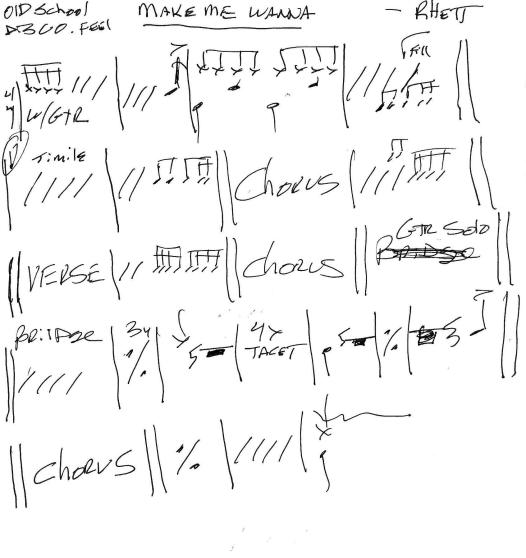 OLD School MAKE ME WANNA — RHETT
DISCO. FEEL
4/4 W/GTR Fill
V Simile Chorus
VERSE Chorus GTR Solo
BRIDGE
BRIDGE 3x 4x
TACET
Chorus